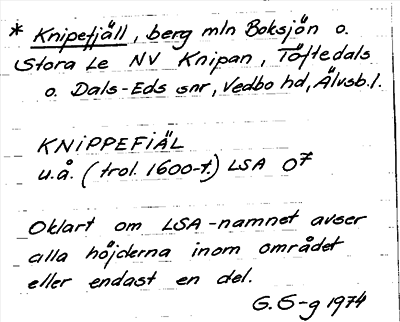 * Knipefjäll, berg mln Boksjön o.
Stora Le NV Knipan, Töftedals
o. Dals-Eds snr, Vedbo hd, Älvsb. l.
KNIPPEFIÄL
u.å. (trol. 1600-t.) LSA O7
Oklart om LSA-namnet avser
alla höjderna inom området
eller endast en del.
G. G-g 1974